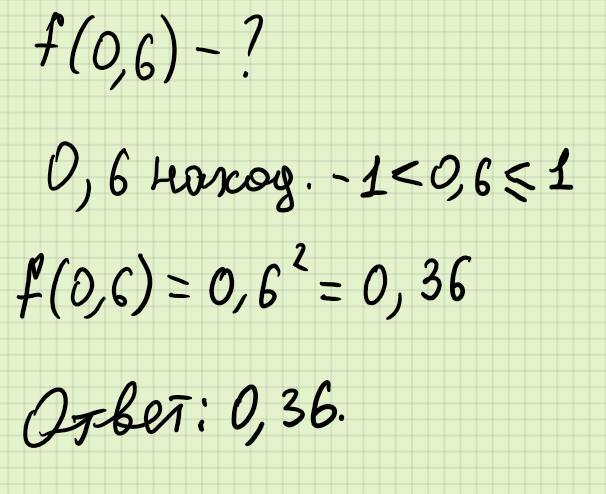 f(0,6) - ?
0,6 наход. -1 < 0,6 ⩽ 1
f(0,6) = 0,6² = 0,36
Ответ: 0,36.